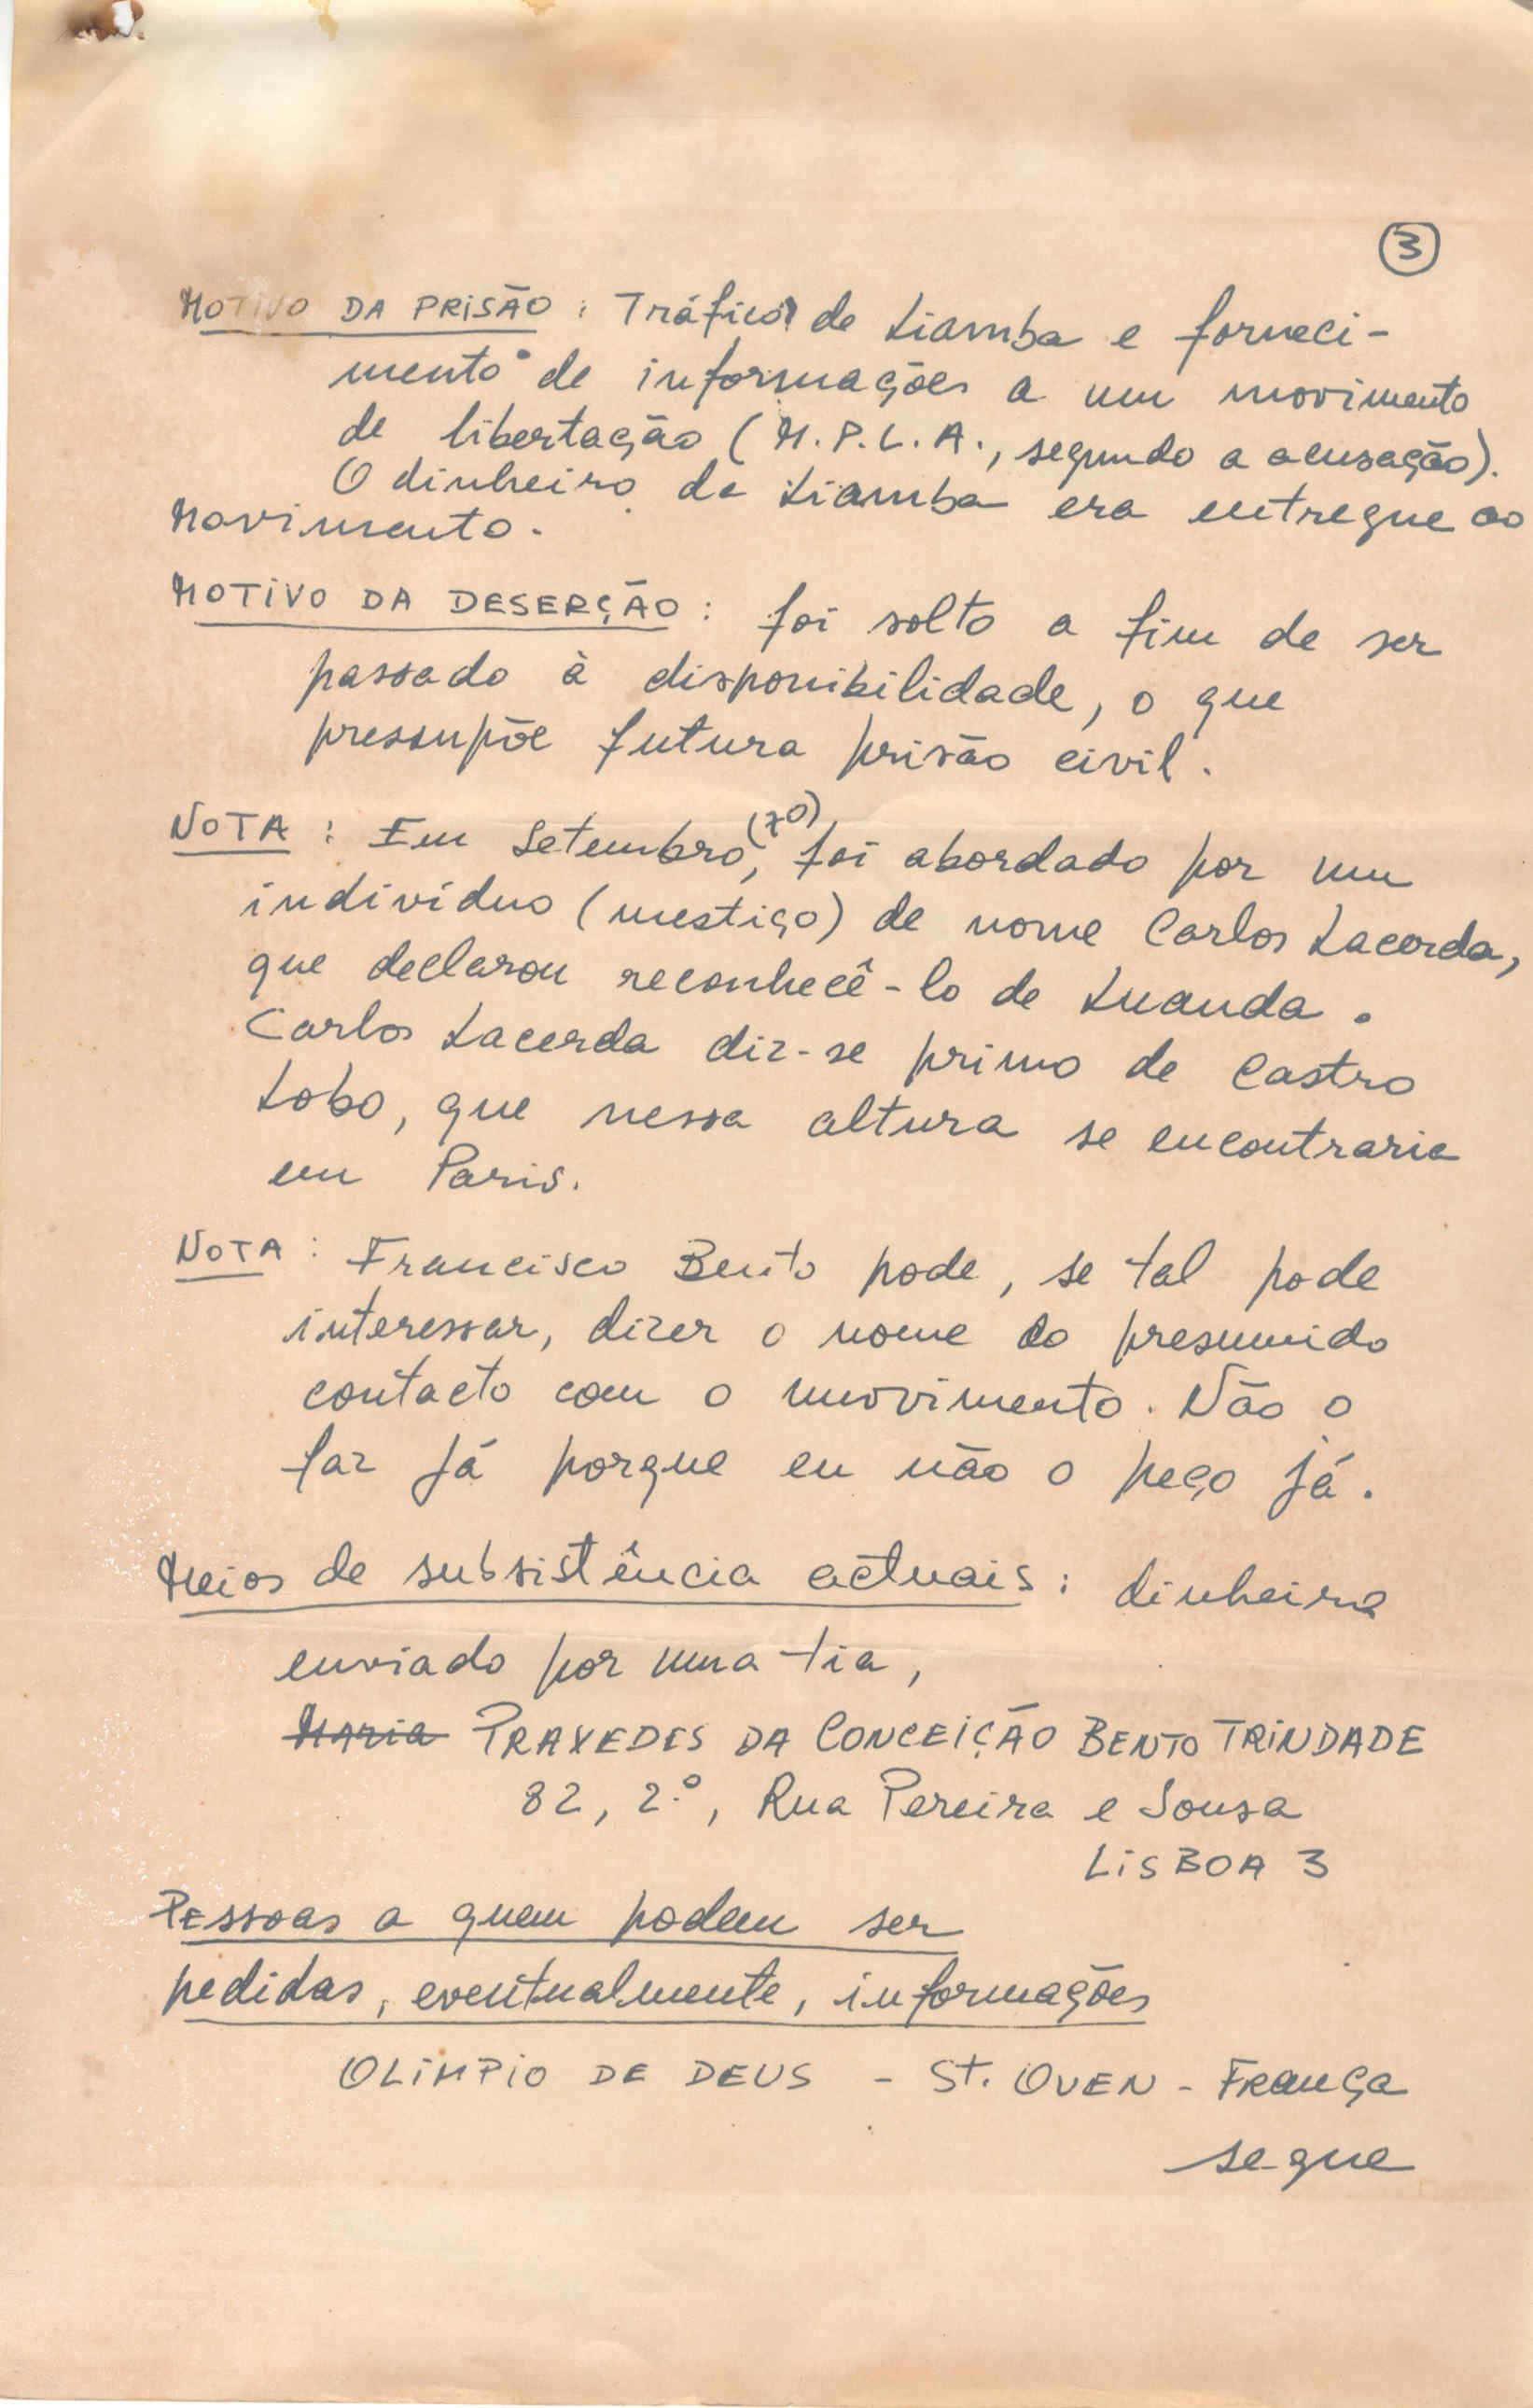 3
MOTIVO DA PRISÃO : Tráfico de Liamba e forneci-
mento de informações a um movimento
de libertação (M.P.L.A., segundo a acusação).
O dinheiro da Liamba era entregue ao
Movimento.
MOTIVO DA DESERÇÃO : foi solto a fim de ser
passado à disponibilidade, o que
pressupõe futura prisão civil.
NOTA : Em Setembro (70), foi abordado por um
indivíduo (mestiço) de nome Carlos Lacerda,
que declarou reconhecê-lo de Luanda.
Carlos Lacerda diz-se primo de Castro
Lobo, que nessa altura se encontraria
em Paris.
NOTA : Francisco Bento pode, se tal pode
interessar, dizer o nome do presumido
contacto com o movimento. Não o
faz já porque eu não o peço já.
Meios de subsistência actuais : dinheiro
enviado por uma tia,
Maria PRAXEDES DA CONCEIÇÃO BENTO TRINDADE
82, 2.º, Rua Pereira e Sousa
LISBOA 3
Pessoas a quem podem ser
pedidas, eventualmente, informações
OLIMPIO DE DEUS - St. OUEN - França
segue